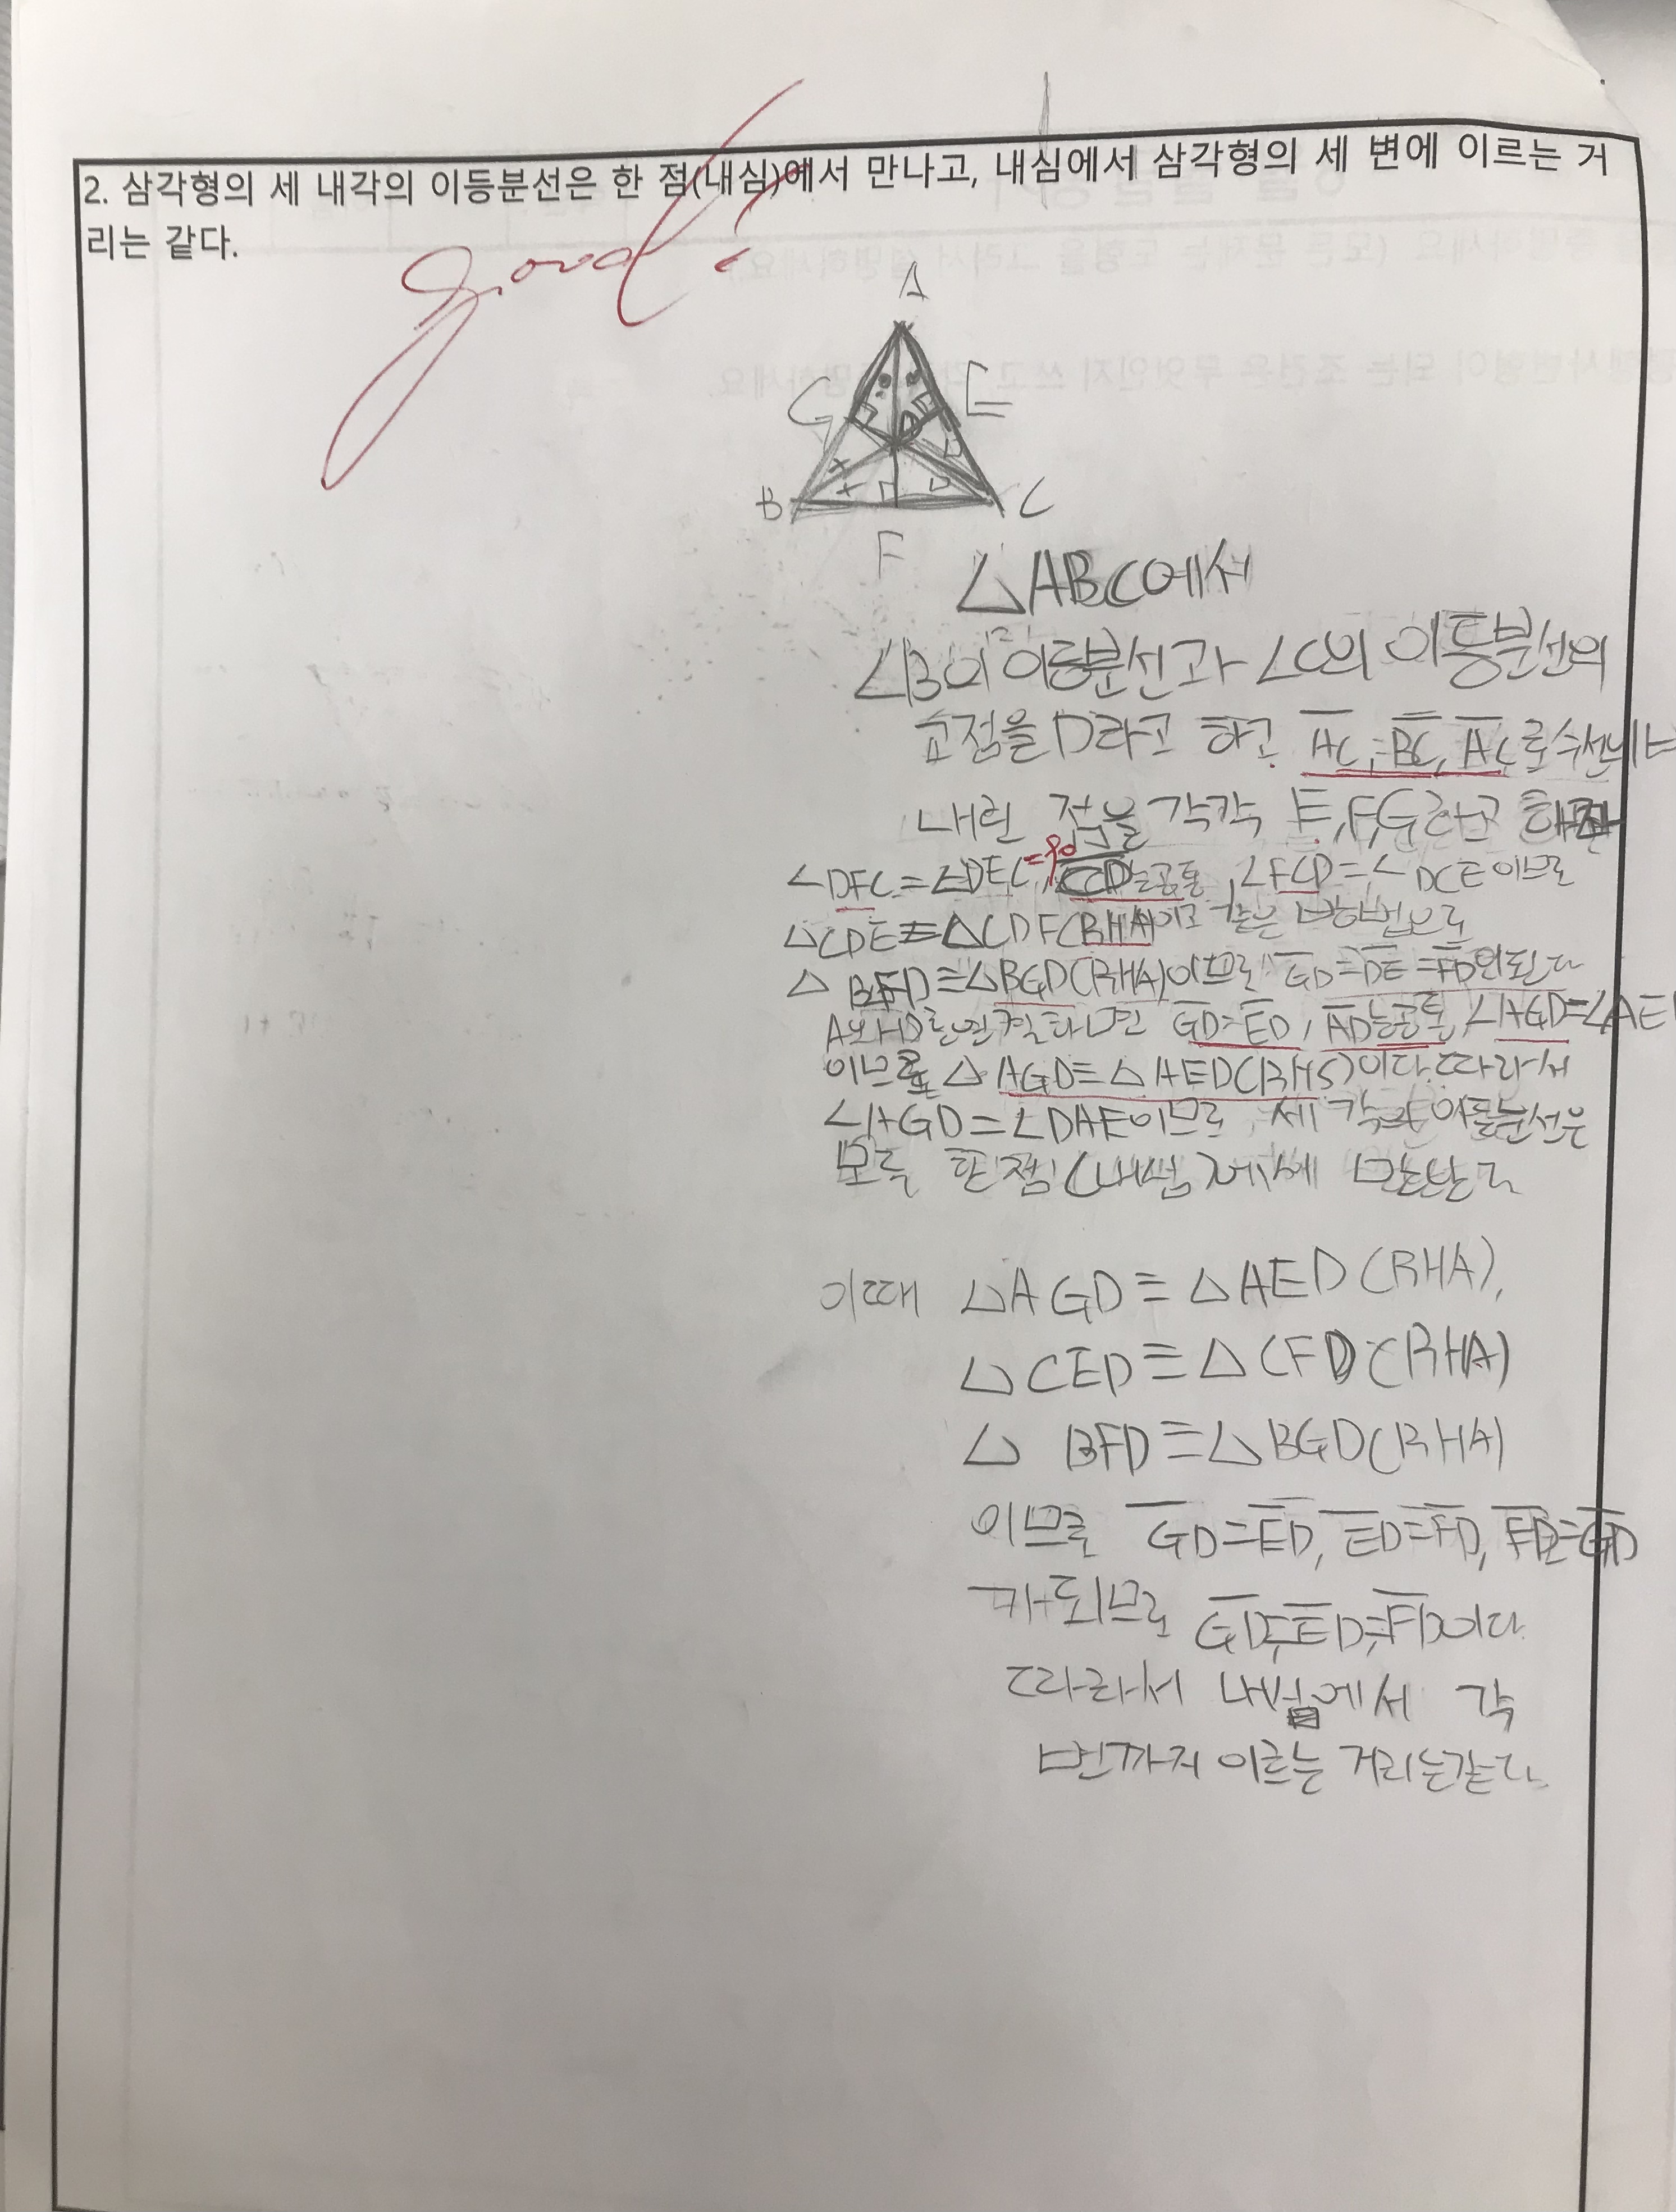 2. 삼각형의 세 내각의 이등분선은 한 점(내심)에서 만나고, 내심에서 삼각형의 세 변에 이르는 거
리는 같다.
good!
A
G E
D
B C
F
△ABC에서
∠B의 이등분선과 ∠C의 이등분선의
교점을 D라고 하고 AC, BC, AC로 수선의
내린 점을 각각 E, F, G라고 하면
∠DFC=∠DEC=90, CD는공통, ∠FCD=∠DCE이므로
△CDE≡△CDF(RHA)이고 같은 방법으로
△BFD≡△BGD(RHA)이므로 GD=DE=FD이 된다
A와 D를연결하면 GD=ED, AD는공통, ∠AGD=∠AED
이므로 △AGD≡△AED(RHS)이다.따라서
∠AGD=∠DAE이므로 세 각의 이등분선은
모두 한점(내심)에서 만난다
이때 △AGD≡△AED(RHA),
△CED≡△CFD(RHA)
△BFD≡△BGD(RHA)
이므로 GD=ED, ED=FD, FD=GD
가되므로 GD=ED=FD이다
따라서 내심에서 각
변까지 이르는 거리는같다.